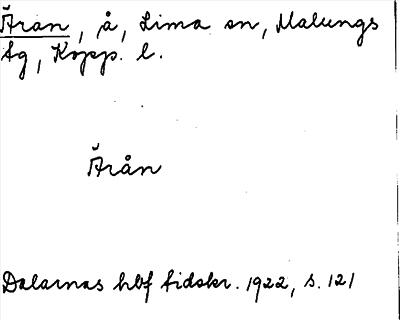 Äran, å, Lima sn, Malungs
tg, Kopp. l.
Ärån
Dalarnas hbf tidskr. 1922, s. 121